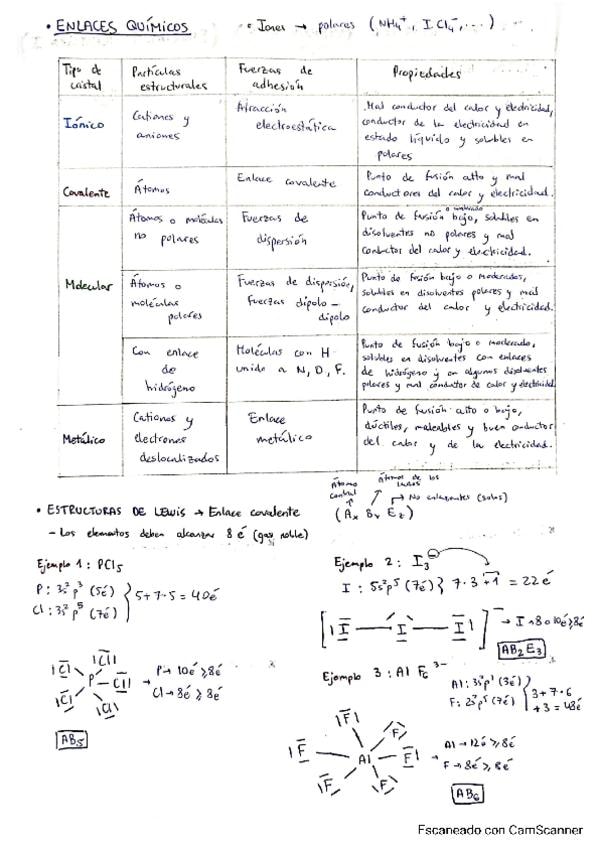 • ENLACES QUÍMICOS
• Iones → polares (NH4+, ICl4-, ...)
Tipo de cristal
Partículas estructurales
Fuerzas de adhesión
Propiedades
Iónico
Cationes y aniones
Atracción electroestática
Mal conductor del calor y electricidad,
conductor de la electricidad en
estado líquido y solubles en
polares
Covalente
Átomos
Enlace covalente
Punto de fusión alto y mal
conductores del calor y electricidad.
Molecular
Átomos o moléculas
no polares
Fuerzas de
dispersión
Punto de fusión bajo, solubles en
disolventes no polares y mal
conductor del calor y electricidad.
Átomos o
moléculas
polares
Fuerzas de dispersión,
fuerzas dipolo -
dipolo
Punto de fusión bajo o moderados,
solubles en disolventes polares y mal
conductor del calor y electricidad.
Con enlace
de
hidrógeno
Moléculas con H
unido a N, O, F.
Punto de fusión bajo o moderado,
solubles en disolventes con enlaces
de hidrógeno y en algunos disolventes
polares y mal conductor de calor y electricidad
Metálico
Cationes y
electrones
deslocalizados
Enlace
metálico
Punto de fusión alto o bajo,
dúctiles, maleables y buen conductor
del calor y de la electricidad.
• ESTRUCTURAS DE LEWIS → Enlace covalente
Átomo central
Átomos de los lados
→ No enlazantes (solos)
(Ax By Ez)
- Los elementos deben alcanzar 8 é (gas noble)
Ejemplo 1: PCl5
P: 3s² p³ (5é)
Cl: 3s² p⁵ (7é)
5+7·5 = 40é
Cl
Cl
P
Cl
Cl
Cl
→ P → 10é ≥ 8é
Cl → 8é ≥ 8é
AB5
Ejemplo 2: I3 -
I: 5s² p⁵ (7é) } 7·3+1 = 22é
[ I — I — I ]-
→ I → 8 o 10é ≥ 8é
AB2E3
Ejemplo 3: AlF6 3-
Al: 3s² p¹ (3é)
F: 2s² p⁵ (7é)
3+7·6
+3 = 48é
F
F
F
Al
F
F
F
→ Al → 12é ≥ 8é
F → 8é ≥ 8é
AB6
Escaneado con CamScanner